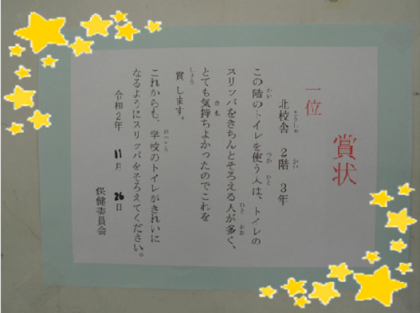 賞状
一位
北校舎　2階　3年
この階のトイレを使う人は、トイレの
スリッパをきちんとそろえる人が多く、
とても気持ちよかったのでこれを
賞します。
これからも、学校のトイレがきれいに
なるようにスリッパをそろえてください。
令和2年　11月　26日
保健委員会